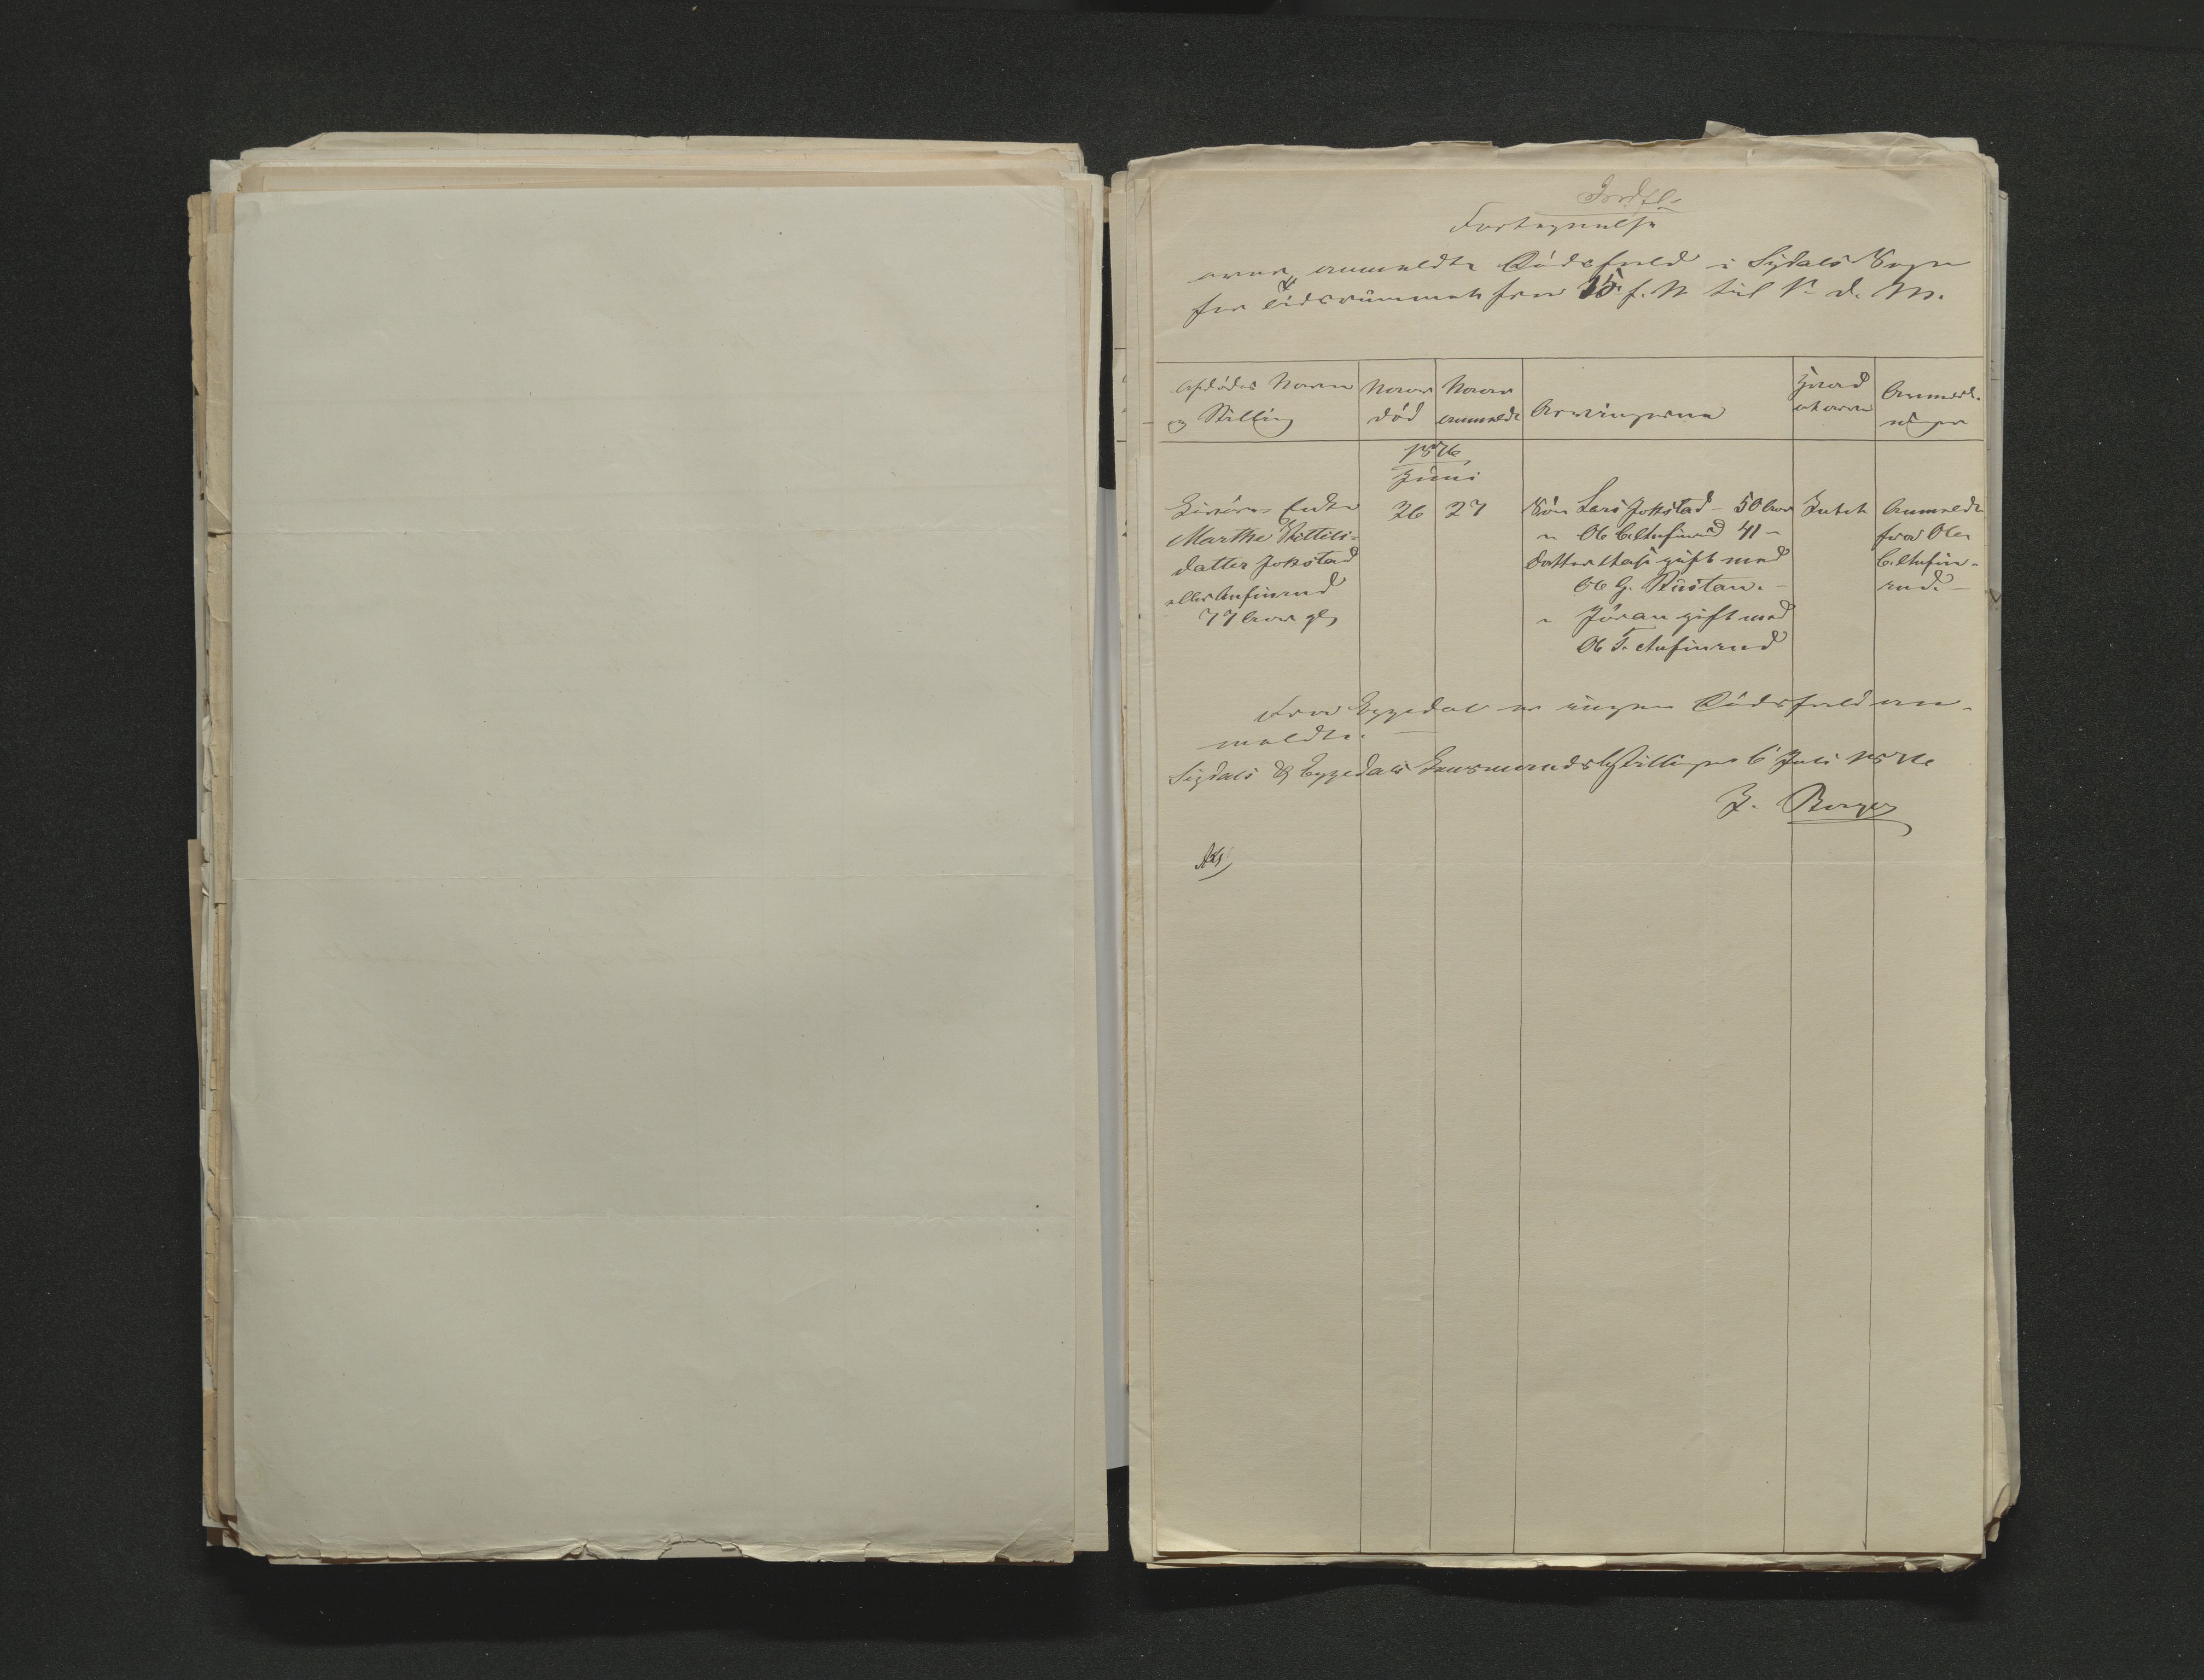 Fortegnelse
over anmeldte Dödsfald i Sigdals Sogn
for Tidsrummet fra 15 f. M til 1 d. M.
Afdödes Navn
og Stilling
Naar
död
Naar
anmeldt
Arvingerne
Hvad
efterladt
Anmærk-
ninger
1876
Juni
Enke
Marthe Kittils-
datter Jokstad
eller Anfinrud
77 Aar gl
26
27
Sön Lars Jokstad - 50 Aar
" Ole Anfinrud 41 -
Datter gift med
Ole G. Rustan. -
" Jöran gift med
Ole T. Anfinrud
Intet
Anmeldt
fra Ole
Anfin-
rud. -
Fra Eggedal er ingen Dödsfald an-
meldte. -
Sigdals & Eggedals Lensmandsbestilling 6 Juli 1876
Borger